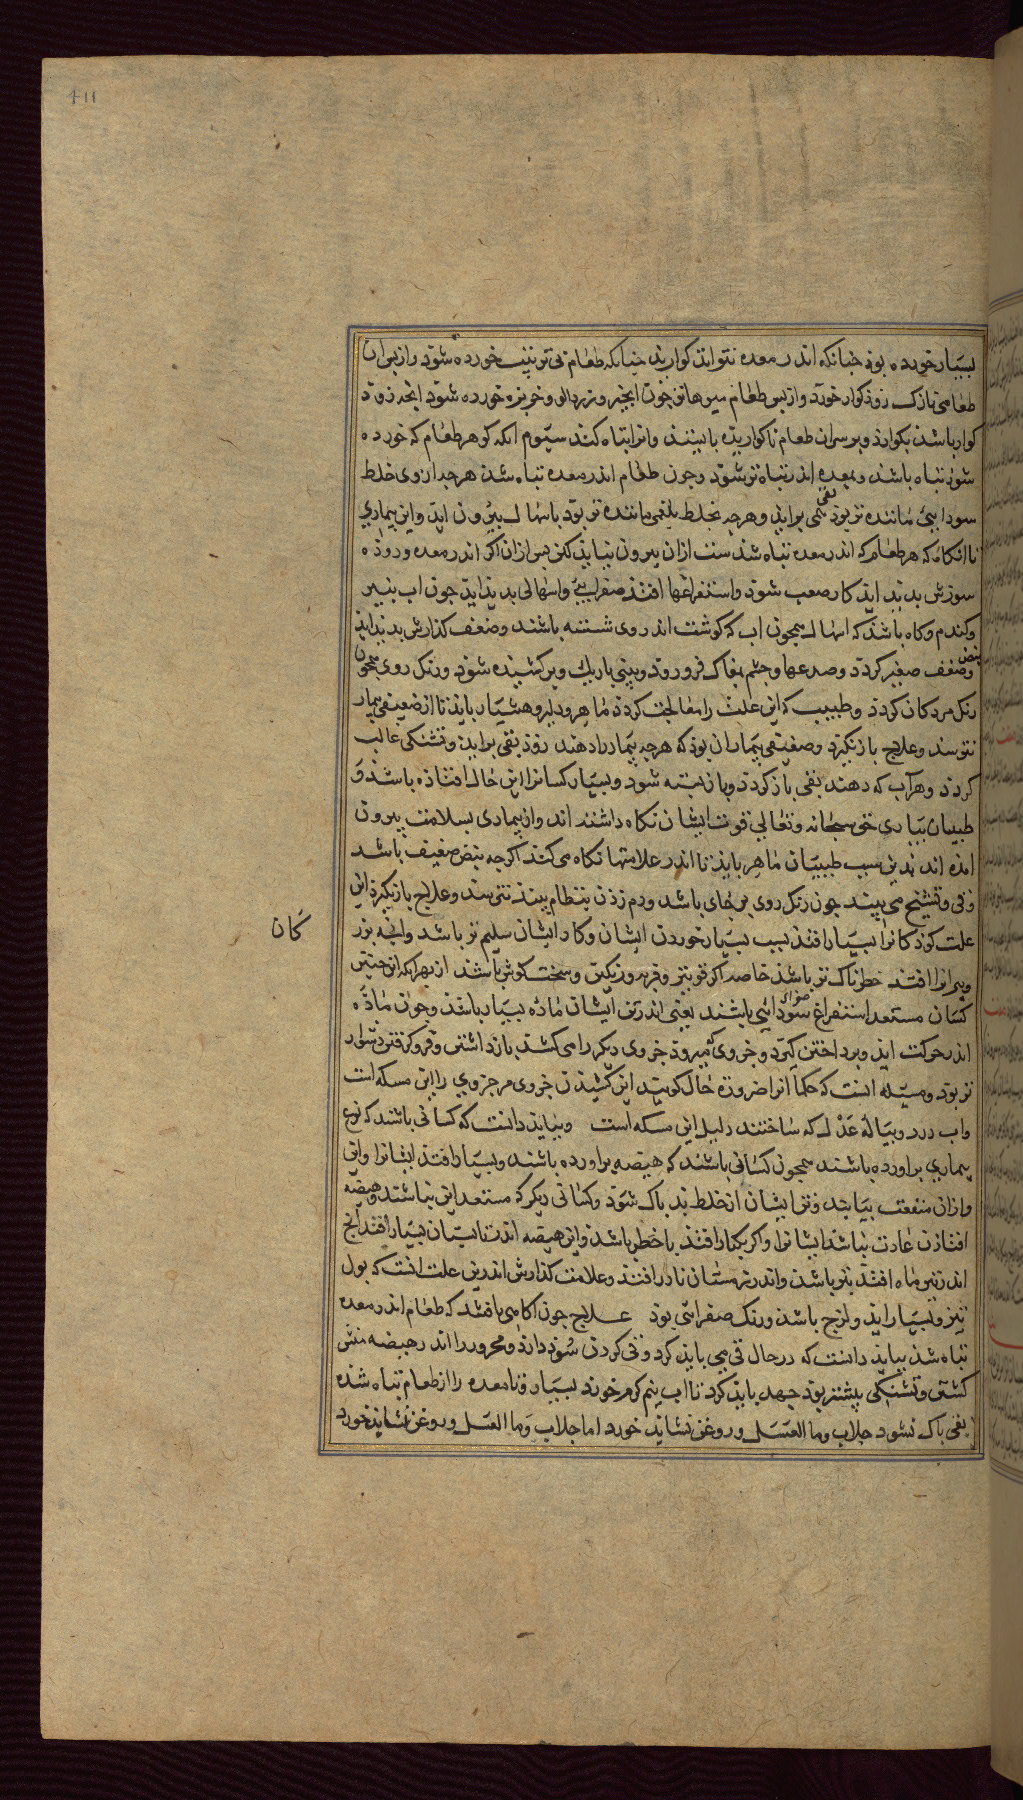 411
بسیار خورده بود چنانکه اندر معده نتواند کوارید چنانکه طعام بی ترتیب خورده شود و از پس آن
طعامی نازک زوذ کوار خورد و از پس طعام میوهاتر چون انجیر و زردالو و خربزه خورده شود انچه زوذ
کوار باشد بکوارذ و بر سر ان طعام ناکواریده بایستد و انرا تباه کند سیوم انکه کوهر طعام که خورده
شوذ تباه باشد و بمعده اندر تباه تر شود و چون طعام اندر معده تباه شد هرچه از وی خلط
سودایی ماننده تر بوذ بقی می براید و هرچه بخلط بلغمی ماننده تر بود باسهال بیرون اید و این بیماری
تا انکاه که هر طعام که اندر معده تباه شد ست ازان بیرون نیاید پس ازان اکر اندر معده و روده
سوزش بدید اید کار صعب شود و استفراغها افتد صفرایی و اسهالی بدید اید چون اب پنیر
و کندم و کاه باشد که اسهال همچون اب که کوشت اندر وی شسته باشند و ضعف کذارش بدید اید
نبض و ضعف صغیر کردد و صدغها و چشم بمغاک فرو رود و بینی باریک و برکشیده شوذ و رنک روی همچون
رنک مردکان کردد و طبیب که این علت را معالجت کردد ماهر و دلیر و هشیار باید تا از ضعیفی بیمار
نترسد و علاج بازنکیرد و ضعیفی بیماران بود که هرچه بیمار را دهند زوذ بقی براید و تشنکی غالب
کردد و هر اب که دهند بقی باز کردد و باز تشنه شود و بسیار کسانرا این حال افتاده باشد و
طبیبان بیاری حق سبحانه و تعالی قوت ایشان نکاه داشته اند و از بیماری بسلامت بیرون
امده اند بدین سبب طبیبان ماهر باید تا اندر علامتها نکاه می کند اکرچه نبض ضعیف باشد
و قی و تشنج می بیند چون رنک روی بر جای باشد و دم زدن بنظام بیند نترسد و علاج بازنکیرد این
علت کوذکانرا بسیار افتد بسبب بسیار خوردن ایشان و کار ایشان سلیم تر باشد و انچه بزر
کان
و پیرانرا افتد خطرناک تر باشد خاصه اکر قوی تر و فربه و زیکن و سخت کوشت باشند از بهر انکه این چنین
کسان مستعد استفراغ صفرای سودایی باشند یعنی اندر تن ایشان ماده بسیار باشد و چون ماده
اندر حرکت اید و برداختن کیرد و جزوی میرود جزوی دیکر را می کشد بازداشتن و فرو کرفتن دشوار
تر بود و مسئله انست که حکما انرا ضروره خال کویند این کشیدن جزوی مر جزوی را این مسکه است
و اب درد و پیاله عدل که ساختند دلیل این مسکه است و بباید دانست که کسانی باشند که نوع
بیماری براورده باشند همچون کسانی باشند که هیضه براورده باشند و بسیار افتد ایشانرا و این
وازان منفعت بیابند و تن ایشان از خلط بد پاک شود و کسانی دیکر که مستعد این نباشند و هیضه
افتاذن عادت نباشد ایشانرا و اکر یکبار افتد با خطر باشد و این هیضه اندر تابستان بسیار افتد انچ
اندر تیر ماه افتد بتر باشد و اندر زمستان نادر افتد و علامت کذارش اندرین علت انست که بول
تیز و بسیار اید و لزج باشد و رنک صفرایی بود علاج چون اکاهی یافتند که طعام اندر معده
تباه شد بباید دانست که در حال قی می باید کرد و قی کردن سوذ دارد و محرور را اندر هیضه منش
کشتن و تشنکی بیشتر بود جهد باید کرد تا اب نیم کرم خورد بسیار و تا معده را از طعام تباه شده
بقی پاک نشود جلاب و ما العسل و روغن نشاید خورد اما جلاب و ما العسل و روغن نشاید خورد